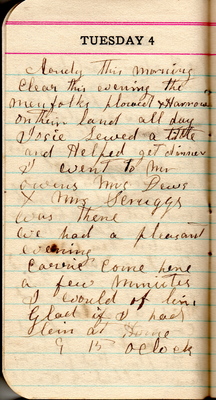 TUESDAY 4
Cloudy this morning
Clear this evening the
menfolks plowed & Harrow
on their land all day
Josie Sewed a little
and Helped get dinner
I went to Mr
Owens Mrs Dews
& Mrs Scruggs
was there
We had a pleasant
evening
Carrie Come here
a few minutes
I would of bin
Glad if I had
Bein at Home
9 15 oclock